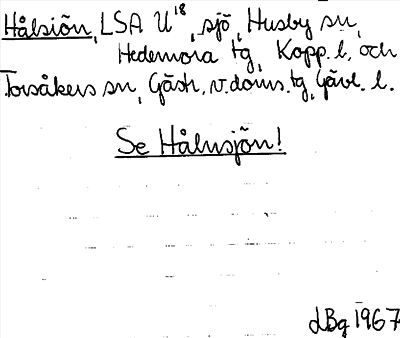 Hålsiön, LSA U 18, sjö, Husby sn,
Hedemora tg, Kopp. l, och
Torsåkers sn, Gästr, v. doms. tg, Gävl. l.
Se Hålnsjön!
LBg 1967